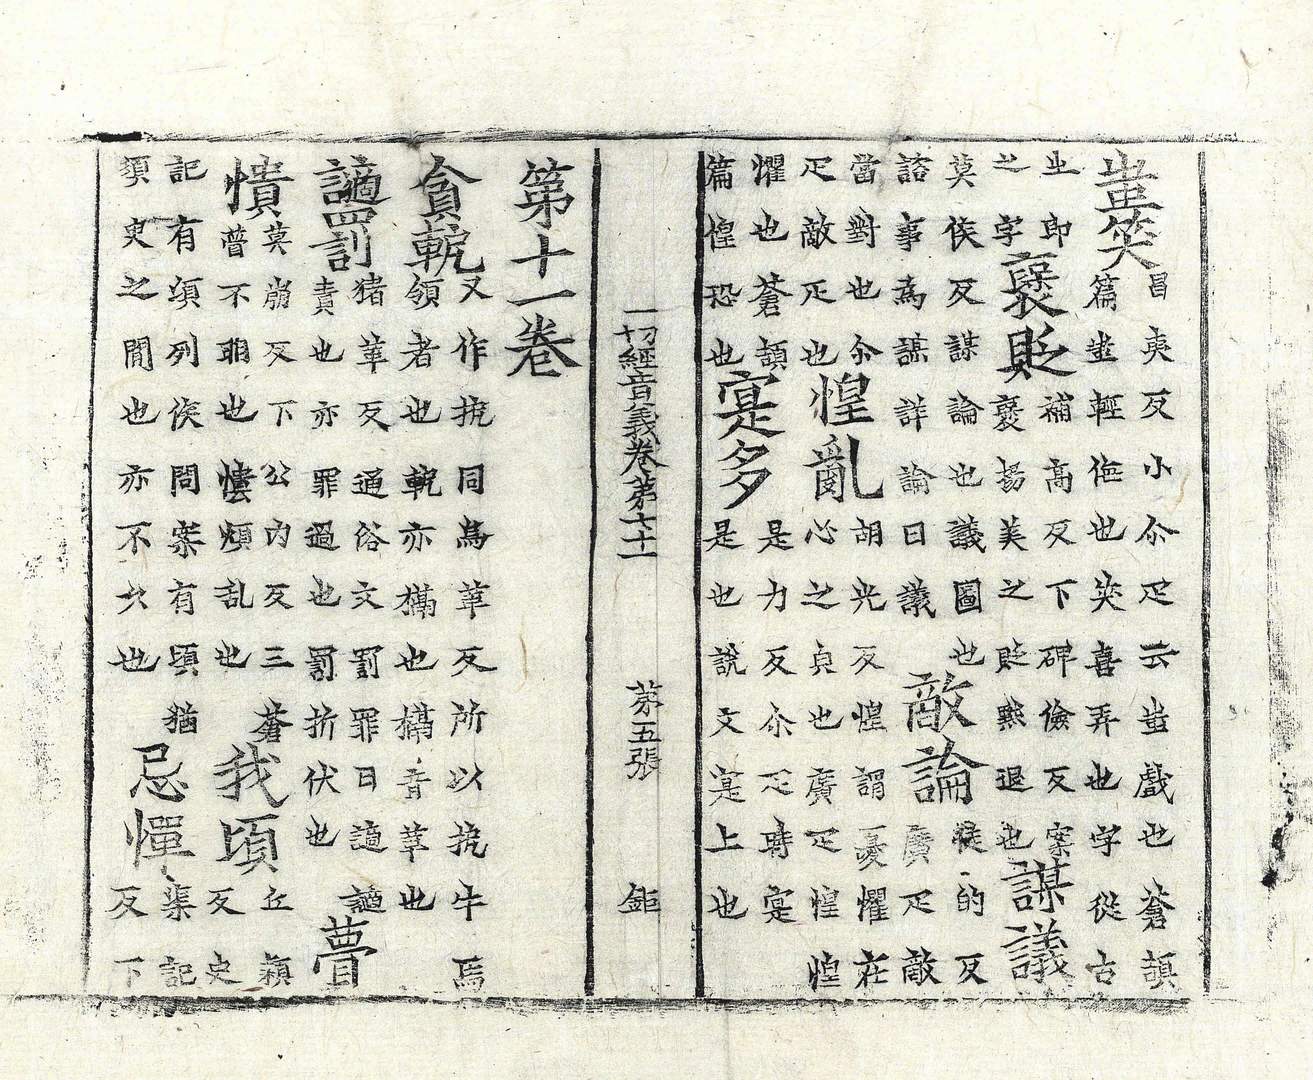 蚩笑
昌夷反小尒疋云蚩戲也蒼頡
篇蚩輕侮也笑喜弄也字從古
㞢即
之字
褒貶
補高反下碑儉反案
褒揚美之貶黜退也
謀議
莫侯反謀論也議圖也
諮事為謀詳論曰議
敵論
徒的反
廣疋敵
當對也尒
疋敵疋也
惶亂
胡光反惶謂憂懼在
心之皃也廣疋惶惶
懼也蒼頡
篇惶恐也
寔多
是力反尒疋時寔
是也說文寔上也
一切經音義卷第七十一 第五張 鉅
第十一卷
貪軛
又作挖同為革反所以挖牛焉
領者也軛亦槅也槅音革也
謫罰
猪革反通俗文罰罪曰謫謫
責也亦罪過也罰折伏也
瞢
憒
莫崩反下公內反三蒼
瞢不明也憒煩乱也
我頃
丘穎
反史
記有須列侯問案有頃猶
須臾之間也亦不久也
忌憚
渠記
反下